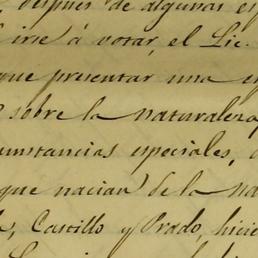 después de algunas es
irse á votar, el Lic.
que presentar una e
sobre la naturaleza
cunstancias especiales,
que nacian de la na
Castillo y Prado, hicie